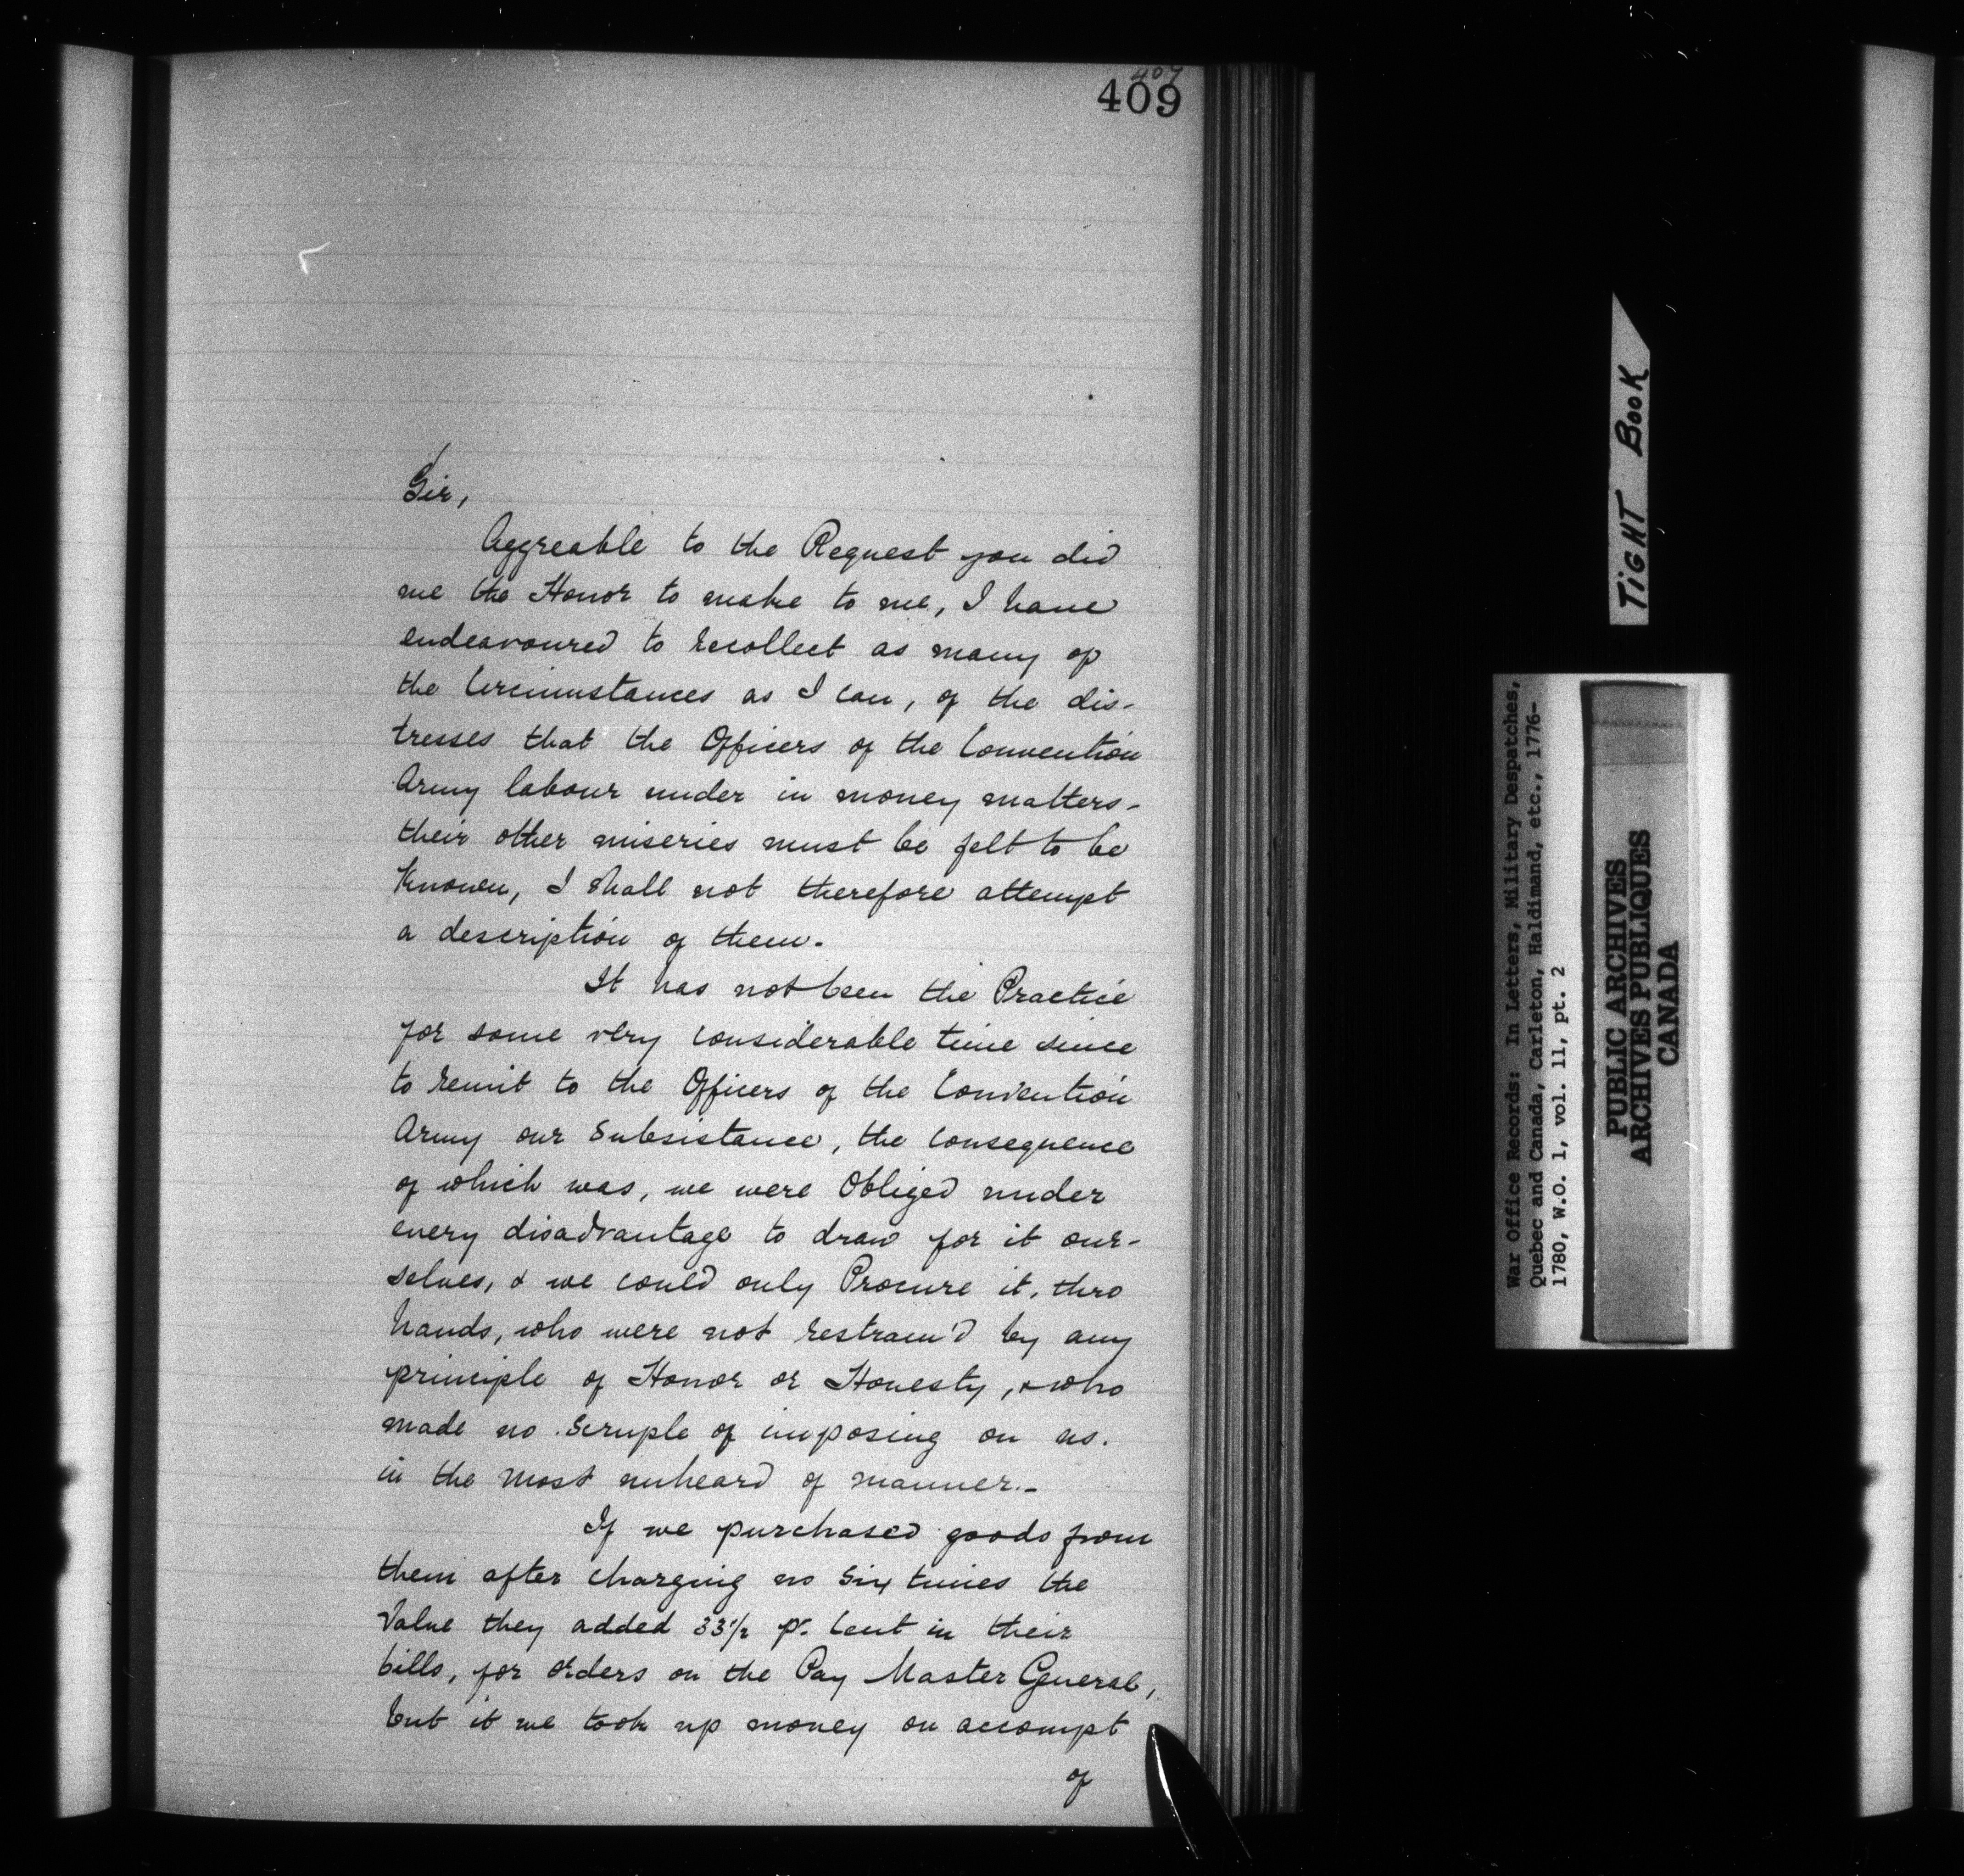 407
409
Sir,
Aggreable to the Request you did
me the Honor to make to me, I have
endeavoured to recollect as many of
the Circumstances as I can, of the dis-
tresses that the Officers of the Convention
Army labour under in money matters-
their other miseries must be felt to be
Known, I shall not therefore attempt
a description of them.
It has not been the Practice
for some very considerable time since
to remit to the Officers of the Convention
Army our Subsistance, the consequence
of which was, we were Obliged under
every disadvantage to draw for it our-
selves, & we could only Procure it, thro
hands, who were not restrain'd by any
principle of Honor or Honesty, & who
made no Scruple of imposing on us.
in the most unheard of manner.-
If we purchased goods from
them after charging us Six times the
Value they added 33 1/2 pr. Cent in their
bills, for orders on the Pay Master General,
but if we took up money on accompt
of
TiGHT BooK
War Office Records: In Letters, Military Despatches,
Quebec and Canada, Carleton, Haldimand, etc., 1776-
1780, W.O. 1, vol. 11, pt. 2
PUBLIC ARCHIVES
ARCHIVES PUBLIQUES
CANADA